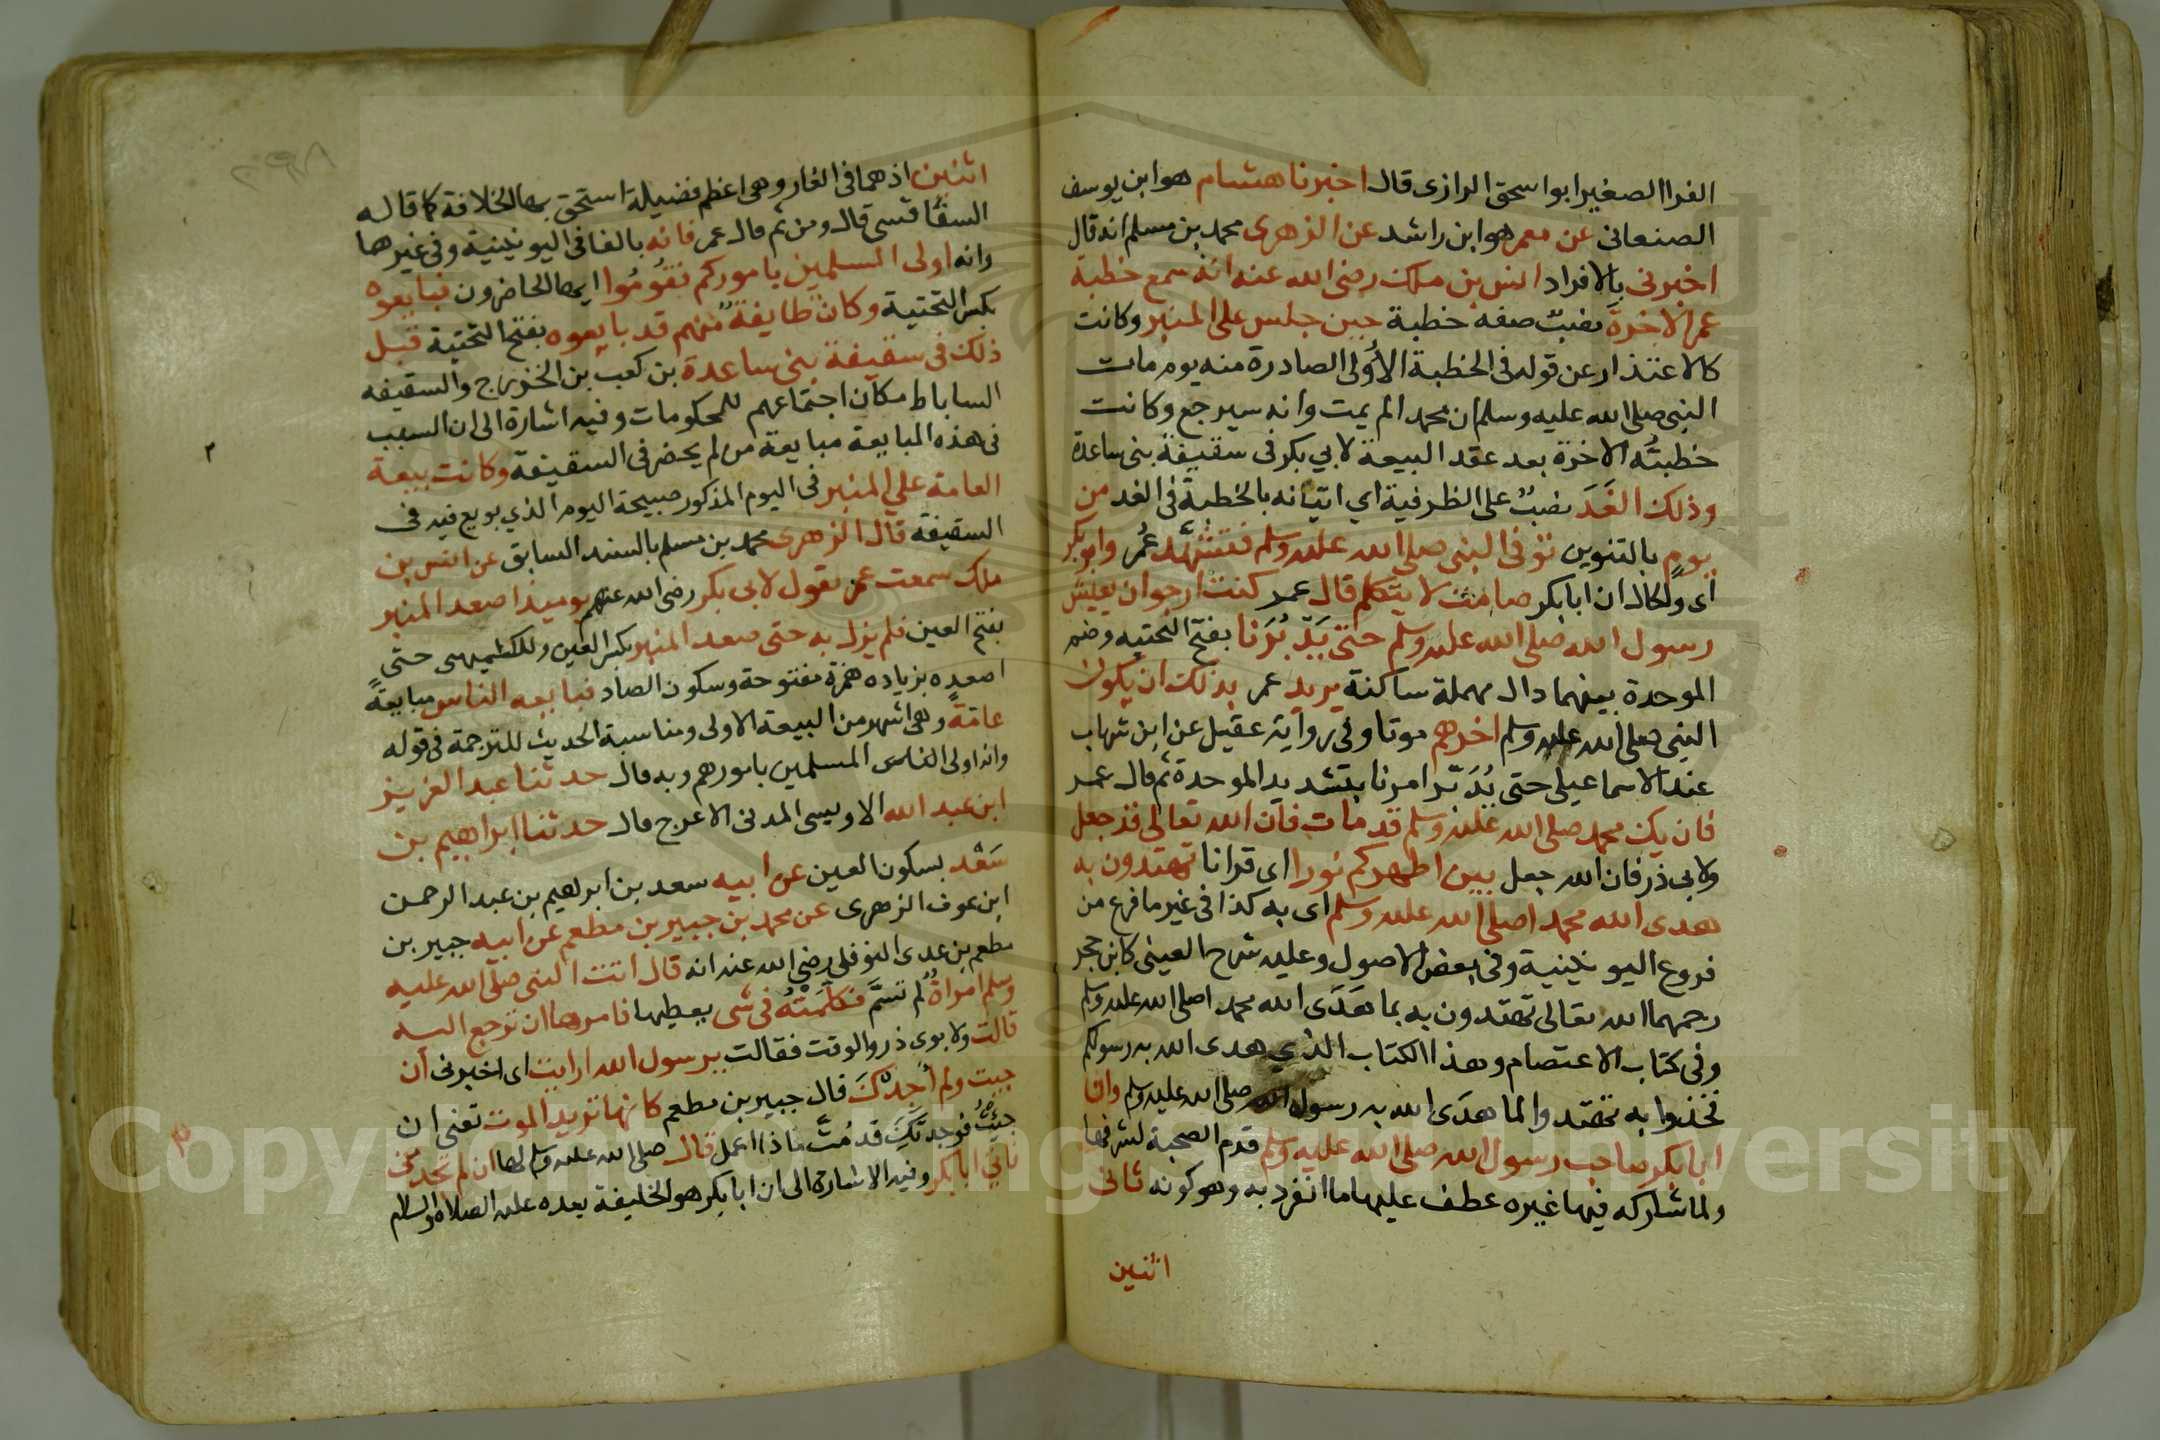 الفرا الصغير ابو اسحق الرازى قال اخبرنا هشام هو ابن يوسف
الصنعانى عن معمر هو ابن راشد عن الزهرى محمد بن مسلم انه قال
اخبرنى بالافراد انس بن ملك رضى الله عنه انه سمع خطبة
عمر الاخرة نصب صفه خطبة حين جلس على المنبر وكانت
كالاعتذار عن قوله فى الخطبة الأولى الصادرة منه يوم مات
النبى صلى الله عليه وسلم ان محمدا لم يمت وانه سيرجع وكانت
خطبتُه الاخرة بعد عقد البيعة لابي بكر فى سقيفة بنى ساعدة
وذلك الغَدَ نصبٌ على الظرفية اي اتيانه بالخطبة فى الغد من
يومٍ بالتنوين توفى النبى صلى الله عليه وسلم فتشهّد عُمر وابو بكر
اى والحال ان ابا بكر صامت لا يتكلم قال عمر كنت ارجو ان يعيش
رسول الله صلى الله عليه وسلم حتى يَدْبُرَنا بفتح التحتيه وضم
الموحدة بينهما دال مهملة ساكنة يريد عمر بذلك ان يكون
النبى صلى الله عليه وسلم اخرهم موتا وفى رواية عقيل عن ابن شهاب
عند الاسماعيلى حتى يُدَبّر امرنا بتشديد الموحدة ثم قال عمر
فان يك محمد صلى الله عليه وسلم قد مات فان الله تعالى قد جعل
ولابى ذر فان الله جعل بين اظهركم نورا اى قرانا تهتدون به
هدى الله محمدا صلى الله عليه وسلم اى به كذا فى غير ما فرع من
فروع اليونينية وفى بعض الاصول وعليه شرح العينى كابن حجر
رحمهما الله تعالى تهتدون به بما هَدَى الله محمدا صلى الله عليه وسلم
وفى كتاب الاعتصام وهذا الكتاب الذي هدى الله به رسولكم
فخذوا به تهتدوا لما هدَى الله به رسوله الله صلى الله عليه وسلم وان
ابا بكر صاحب رسول الله صلى الله عليه وسلم قدم الصحبة لشرفها
ولما شاركه فيها غيره عطف عليها ما انفرد به وهو كونه ثانى
اثنين
٢٩٨
اثنين اذ هما فى الغار وهى اعظم فضيلة استحق بها الخلافة كما قاله
السفاقسى قال ومن ثم قال عمر فانه بالفا فى اليونينية وفى غيرها
وانه اولى المسلمين باموركم فقُومُوا ايها الحاضرون فبايعوه
بكسر التحتية وكان طايفة منهم قد بايعوه بفتح التحتية قبل
ذلك فى سقيفة بنى ساعدة بن كعب بن الخزرج والسقيفه
الساباط مكان اجتماعهم للحكومات وفيه اشارة الى ان السبب
فى هذه المبايعة مبايعة من لم يحضر فى السقيفة وكانت بيعة
العامة علي المنبر فى اليوم المذكور صبيحة اليوم الذي بويع فيه فى
السقيفة قال الزهرى محمد بن مسلم بالسند السابق عن انس بن
ملك سمعت عمر يقول لابى بكر رضى الله عنهم يوميذ اصعد المنبر
بفتح العين فلم يزل به حتى صعد المنبر بكسر العين وللكشميهنى حتى
اصعده بزياده همزة مفتوحة وسكون الصاد فبايعه الناس مبايعةً
عامةً وهى اشهر من البيعة الاولى ومناسبة الحديث للترجمة فى قوله
وانه اولى الناس المسلمين بامورهم وبه قال حدثنا عبد العزيز
ابن عبد الله الاويسى المدنى الاعرج قال حدثنا ابراهيم بن
سَعْد بسكون العين عن ابيه سعد بن ابرهيم بن عبد الرحمن
ابن عوف الزهرى عن محمد بن جبير بن مطعم عن ابيه جبير بن
مطعم بن عدى النوفلى رضى الله عنه انه قال اتت النبى صلى الله عليه
وسلم امراةٌ لم تسمَّ فكلمَتْهُ فى شى يعطيها فامرها ان ترجع اليه
قالت ولابوى ذر والوقت فقالت يرسول الله ارايت اى اخبرنى ان
جيت ولم أجدْكَ قال جبير بن مطعم كانها تريد الموت تعنى ان
جيتُ فوجدتُكَ قد مُتّ ماذا اعمل قال صلى الله عليه وسلم لها ان لم تجدينى
فاتي ابا بكر وفيه الاشارة الى ان ابا بكر هو الخليفة بعده عليه الصلاه والسلام
Copyright © King Saud University